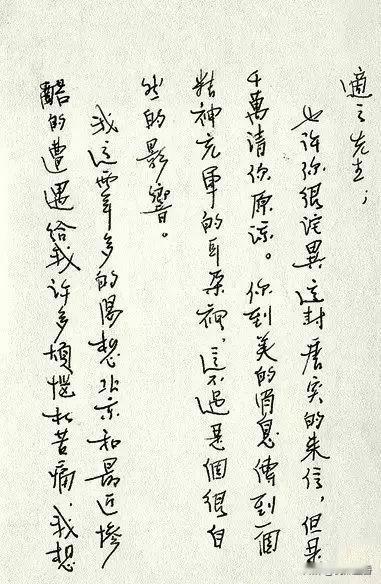 適之先生；
也許你很詫異這封唐突的來信，但是
千萬請你原諒。你到美的消息傳到一個
精神充軍的耳朵裡，這不過是個很自
然的影響。
我這兩年多的渴想北京和最近慘
酷的遭遇給我許多煩惱和苦痛，我想